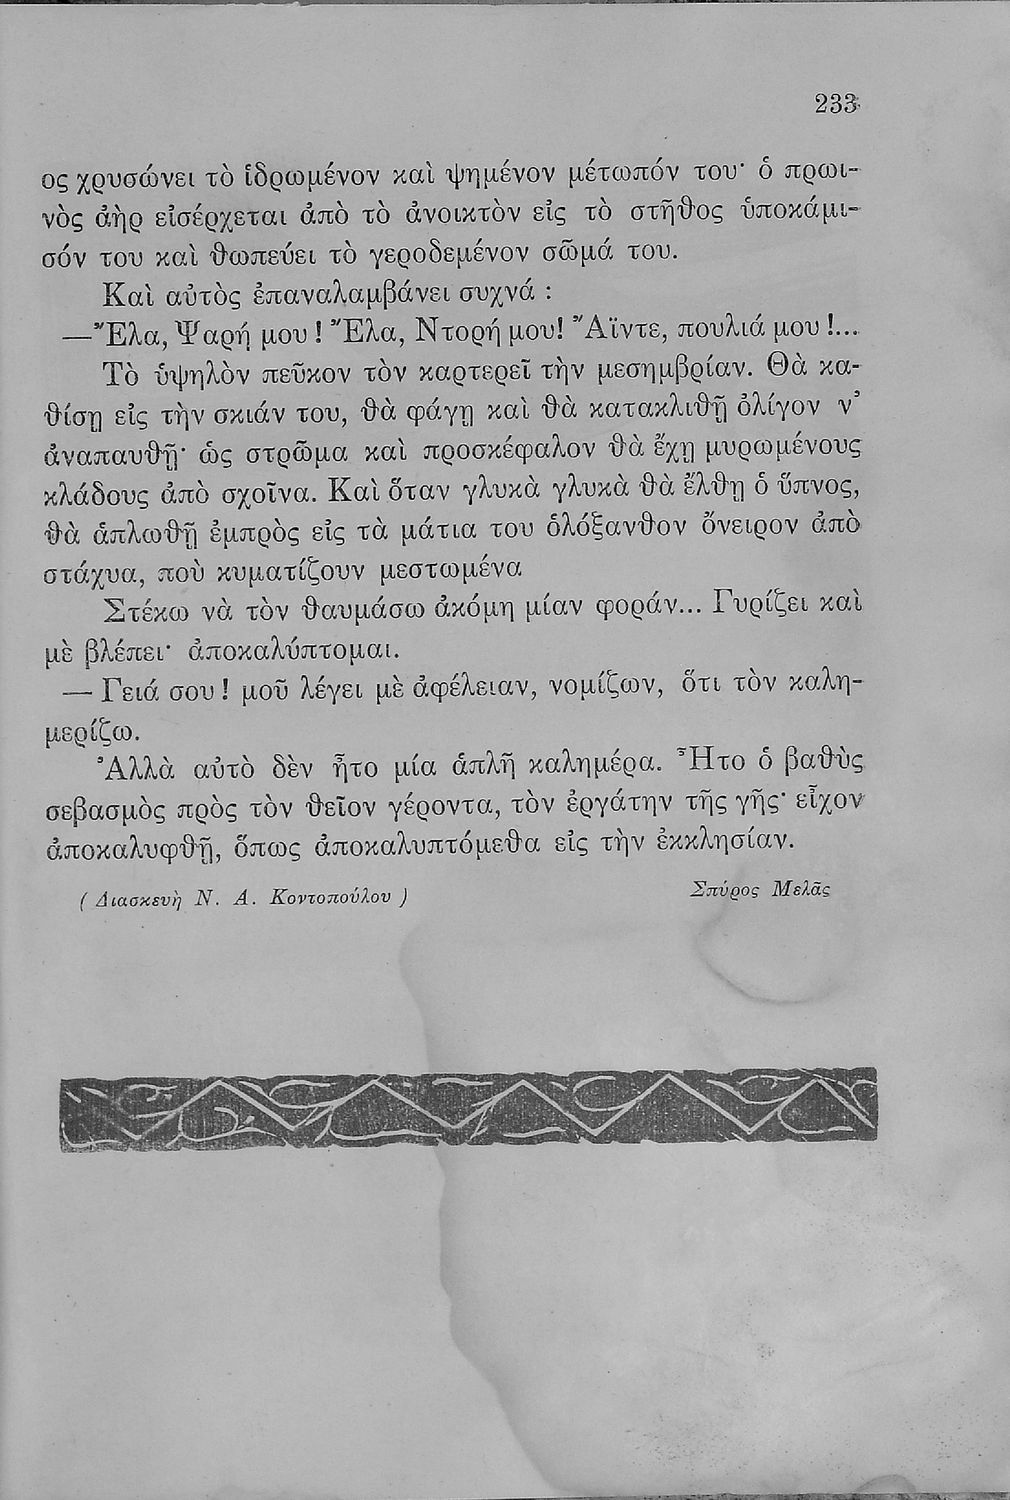 233
ος χρυσώνει τὸ ἱδρωμένον καὶ ψημένον μέτωπόν του· ὁ πρωι-
νὸς ἀὴρ εἰσέρχεται ἀπὸ τὸ ἀνοικτὸν εἰς τὸ στῆθος ὑποκάμι-
σόν του καὶ θωπεύει τὸ γεροδεμένον σῶμά του.
Καὶ αὐτὸς ἐπαναλαμβάνει συχνά :
—Ἔλα, Ψαρή μου ! Ἔλα, Ντορή μου! Ἄϊντε, πουλιά μου !...
Τὸ ὑψηλὸν πεῦκον τὸν καρτερεῖ τὴν μεσημβρίαν. Θὰ κα-
θίσῃ εἰς τὴν σκιάν του, θὰ φάγῃ καὶ θὰ κατακλιθῇ ὀλίγον ν᾽
ἀναπαυθῇ· ὡς στρῶμα καὶ προσκέφαλον θὰ ἔχῃ μυρωμένους
κλάδους ἀπὸ σχοῖνα. Καὶ ὅταν γλυκὰ γλυκὰ θὰ ἔλθῃ ὁ ὕπνος,
θὰ ἁπλωθῇ ἐμπρὸς εἰς τὰ μάτια του ὁλόξανθον ὄνειρον ἀπὸ
στάχυα, ποὺ κυματίζουν μεστωμένα
Στέκω νὰ τὸν θαυμάσω ἀκόμη μίαν φοράν... Γυρίζει καὶ
μὲ βλέπει· ἀποκαλύπτομαι.
— Γειά σου ! μοῦ λέγει μὲ ἀφέλειαν, νομίζων, ὅτι τὸν καλη-
μερίζω.
Ἀλλὰ αὐτὸ δὲν ἦτο μία ἁπλῆ καλημέρα. Ἦτο ὁ βαθὺς
σεβασμὸς πρὸς τὸν θεῖον γέροντα, τὸν ἐργάτην τῆς γῆς· εἶχον
ἀποκαλυφθῆ, ὅπως ἀποκαλυπτόμεθα εἰς τὴν ἐκκλησίαν.
( Διασκευὴ Ν. Α. Κοντοπούλου ) Σπύρος Μελᾶς